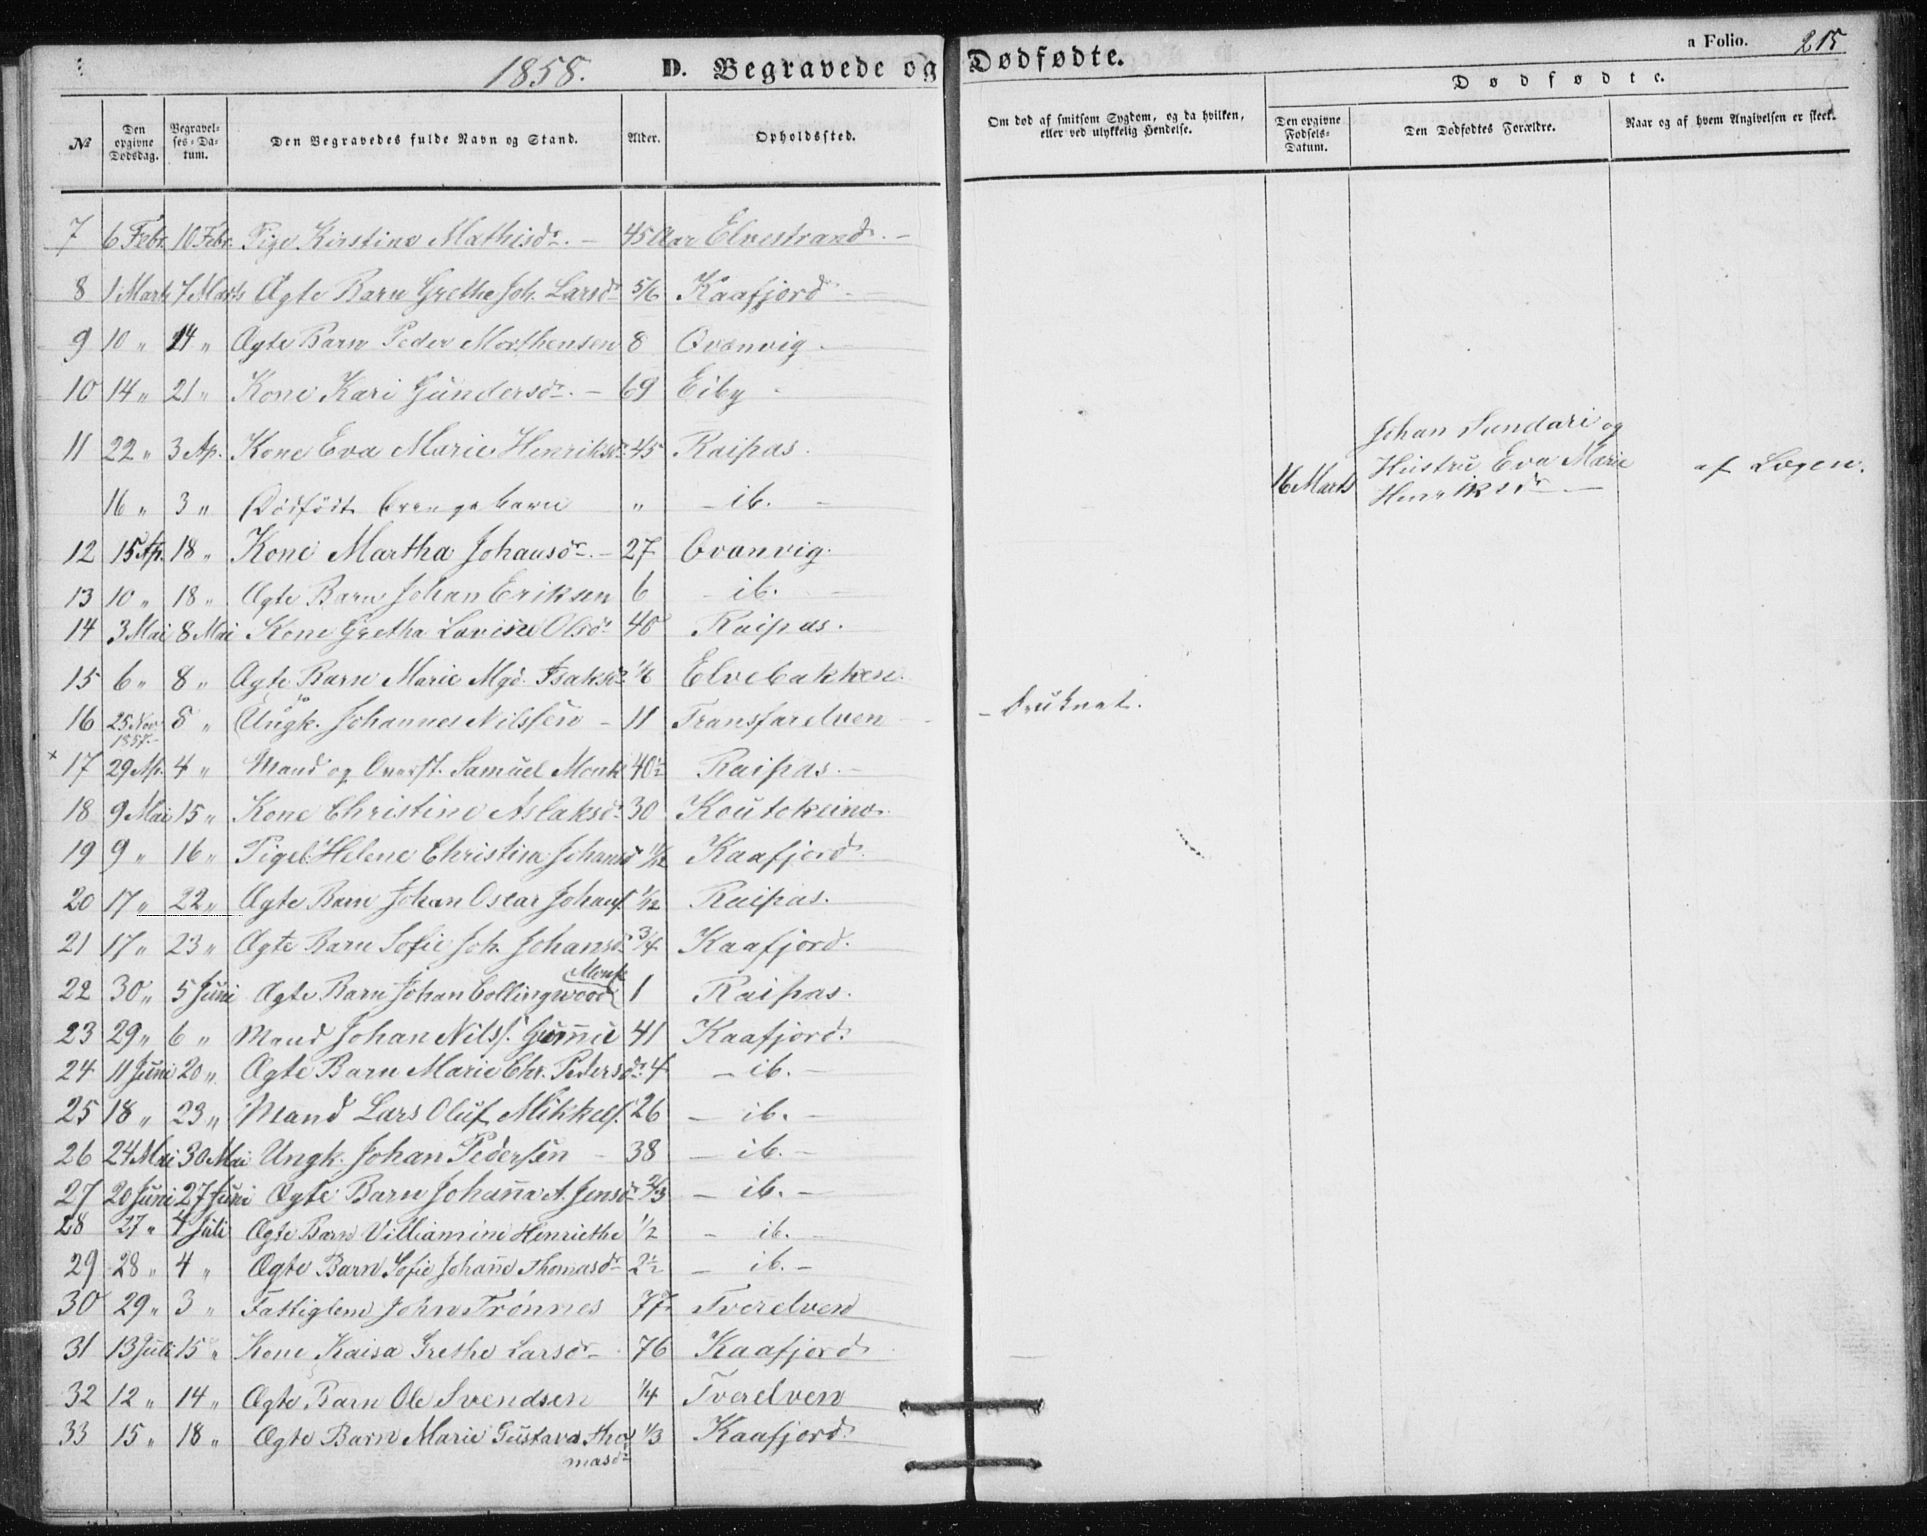 1858. D. Begravede og Dødfødte. n Folio. 215
Dødfødte.
№ Den opgivne Dødsdag. Begravelses-Datum. Den Begravedes fulde Navn og Stand. Alder. Opholdssted. Om død af smitsom Sygdom, og da hvilken, eller ved ulykkelig Hendelse. Den opgivne Fødsels-Datum. Den Dødfødtes Forældre. Naar og af hvem Angivelsen er skeet.
7 6 Febr. 10 Febr. Pige Kirstine Mathisdr. – 45 Aar Elvestrand. –
8 1 Marts 7 Marts Ægte Barn Grethe Joh. Larsdr 5/6 Kaafjord –
9 10 " 14 " Ægte Barn Peder Morthensen 8 Qvænvig.
10 14 " 21 " Kone Kari Gundersdr. – 69 Eiby
11 22 " 3 Ap. Kone Eva Marie Henriksdr 45 Raipas.
16 " 3 " Dødfødt Drengebarn " – ib. – 16 Marts Johan Sundari og
Hustru Eva Marie
Henriksdr – af Lægen.
12 15 Ap. 18 " Kone Martha Johansdr. – 27 Qvænvig.
13 10 " 18 " Ægte Barn Johan Eriksen 6 – ib. –
14 3 Mai 8 Mai Kone Gretha Lovise Olsdr 40 Raipas.
15 6 " 8 " Ægte Barn Marie Mgd. Isaksdr 1/6 Elvebakken.
16 25 Nov. 1857. 8 " Ungk. Johannes Nilssen – 11 Transfarelven – – Druknet.
× 17 29 Ap. 4 " Mand og Overst. Samuel Monk 40½ Raipas. –
18 9 Mai 15 " Kone Christine Aslaksdr 30 Koutokeino.
19 9 " 16 " Pigeb. Helene Christina Johansd 11/12 Kaafjord.
20 17 " 22 " Ægte Barn Johan Oscar Johans. 1/12 Raipas.
21 17 " 23 " Ægte Barn Sofie Joh. Johansdr 3/4 Kaafjord.
22 30 " 5 Juni Ægte Barn Johan Collingwood Monk 1 Raipas.
23 29 " 6 " Mand Johan Nilss. Gunnie 41 Kaafjord.
24 11 Juni 20 " Ægte Barn Marie Chr. Pedersdr 4 – ib. –
25 18 " 23 " Mand Lars Oluf Mikkels. 26 – ib. –
26 24 Mai 30 Mai Ungk. Johan Pedersen – 38 – ib. –
27 20 Juni 27 Juni Ægte Barn Johanna A. Jensdr 2/3 – ib. –
28 27 " 4 Juli Ægte Barn Villiamine Henriethe 1/2 – ib. –
29 28 " 4 " Ægte Barn Sofie Johanne Thomasdr 2½ – ib. –
30 29 " 3 " Fattiglem John Trønnes 77 Tverelven
31 13 Juli 15 " Kone Kaisa Grethe Larsdr – 76 Kaafjord
32 12 " 14 " Ægte Barn Ole Svendsen 1/4 Tverelven
33 15 " 18 " Ægte Barn Marie Gustava Tho
masdr 1/3 Kaafjord